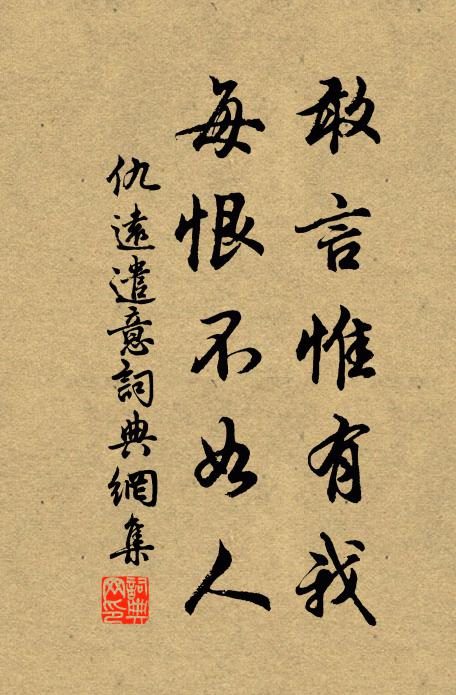 敢言惟有我
每恨不如人
仇遠遣意詞典網集
詞典网印